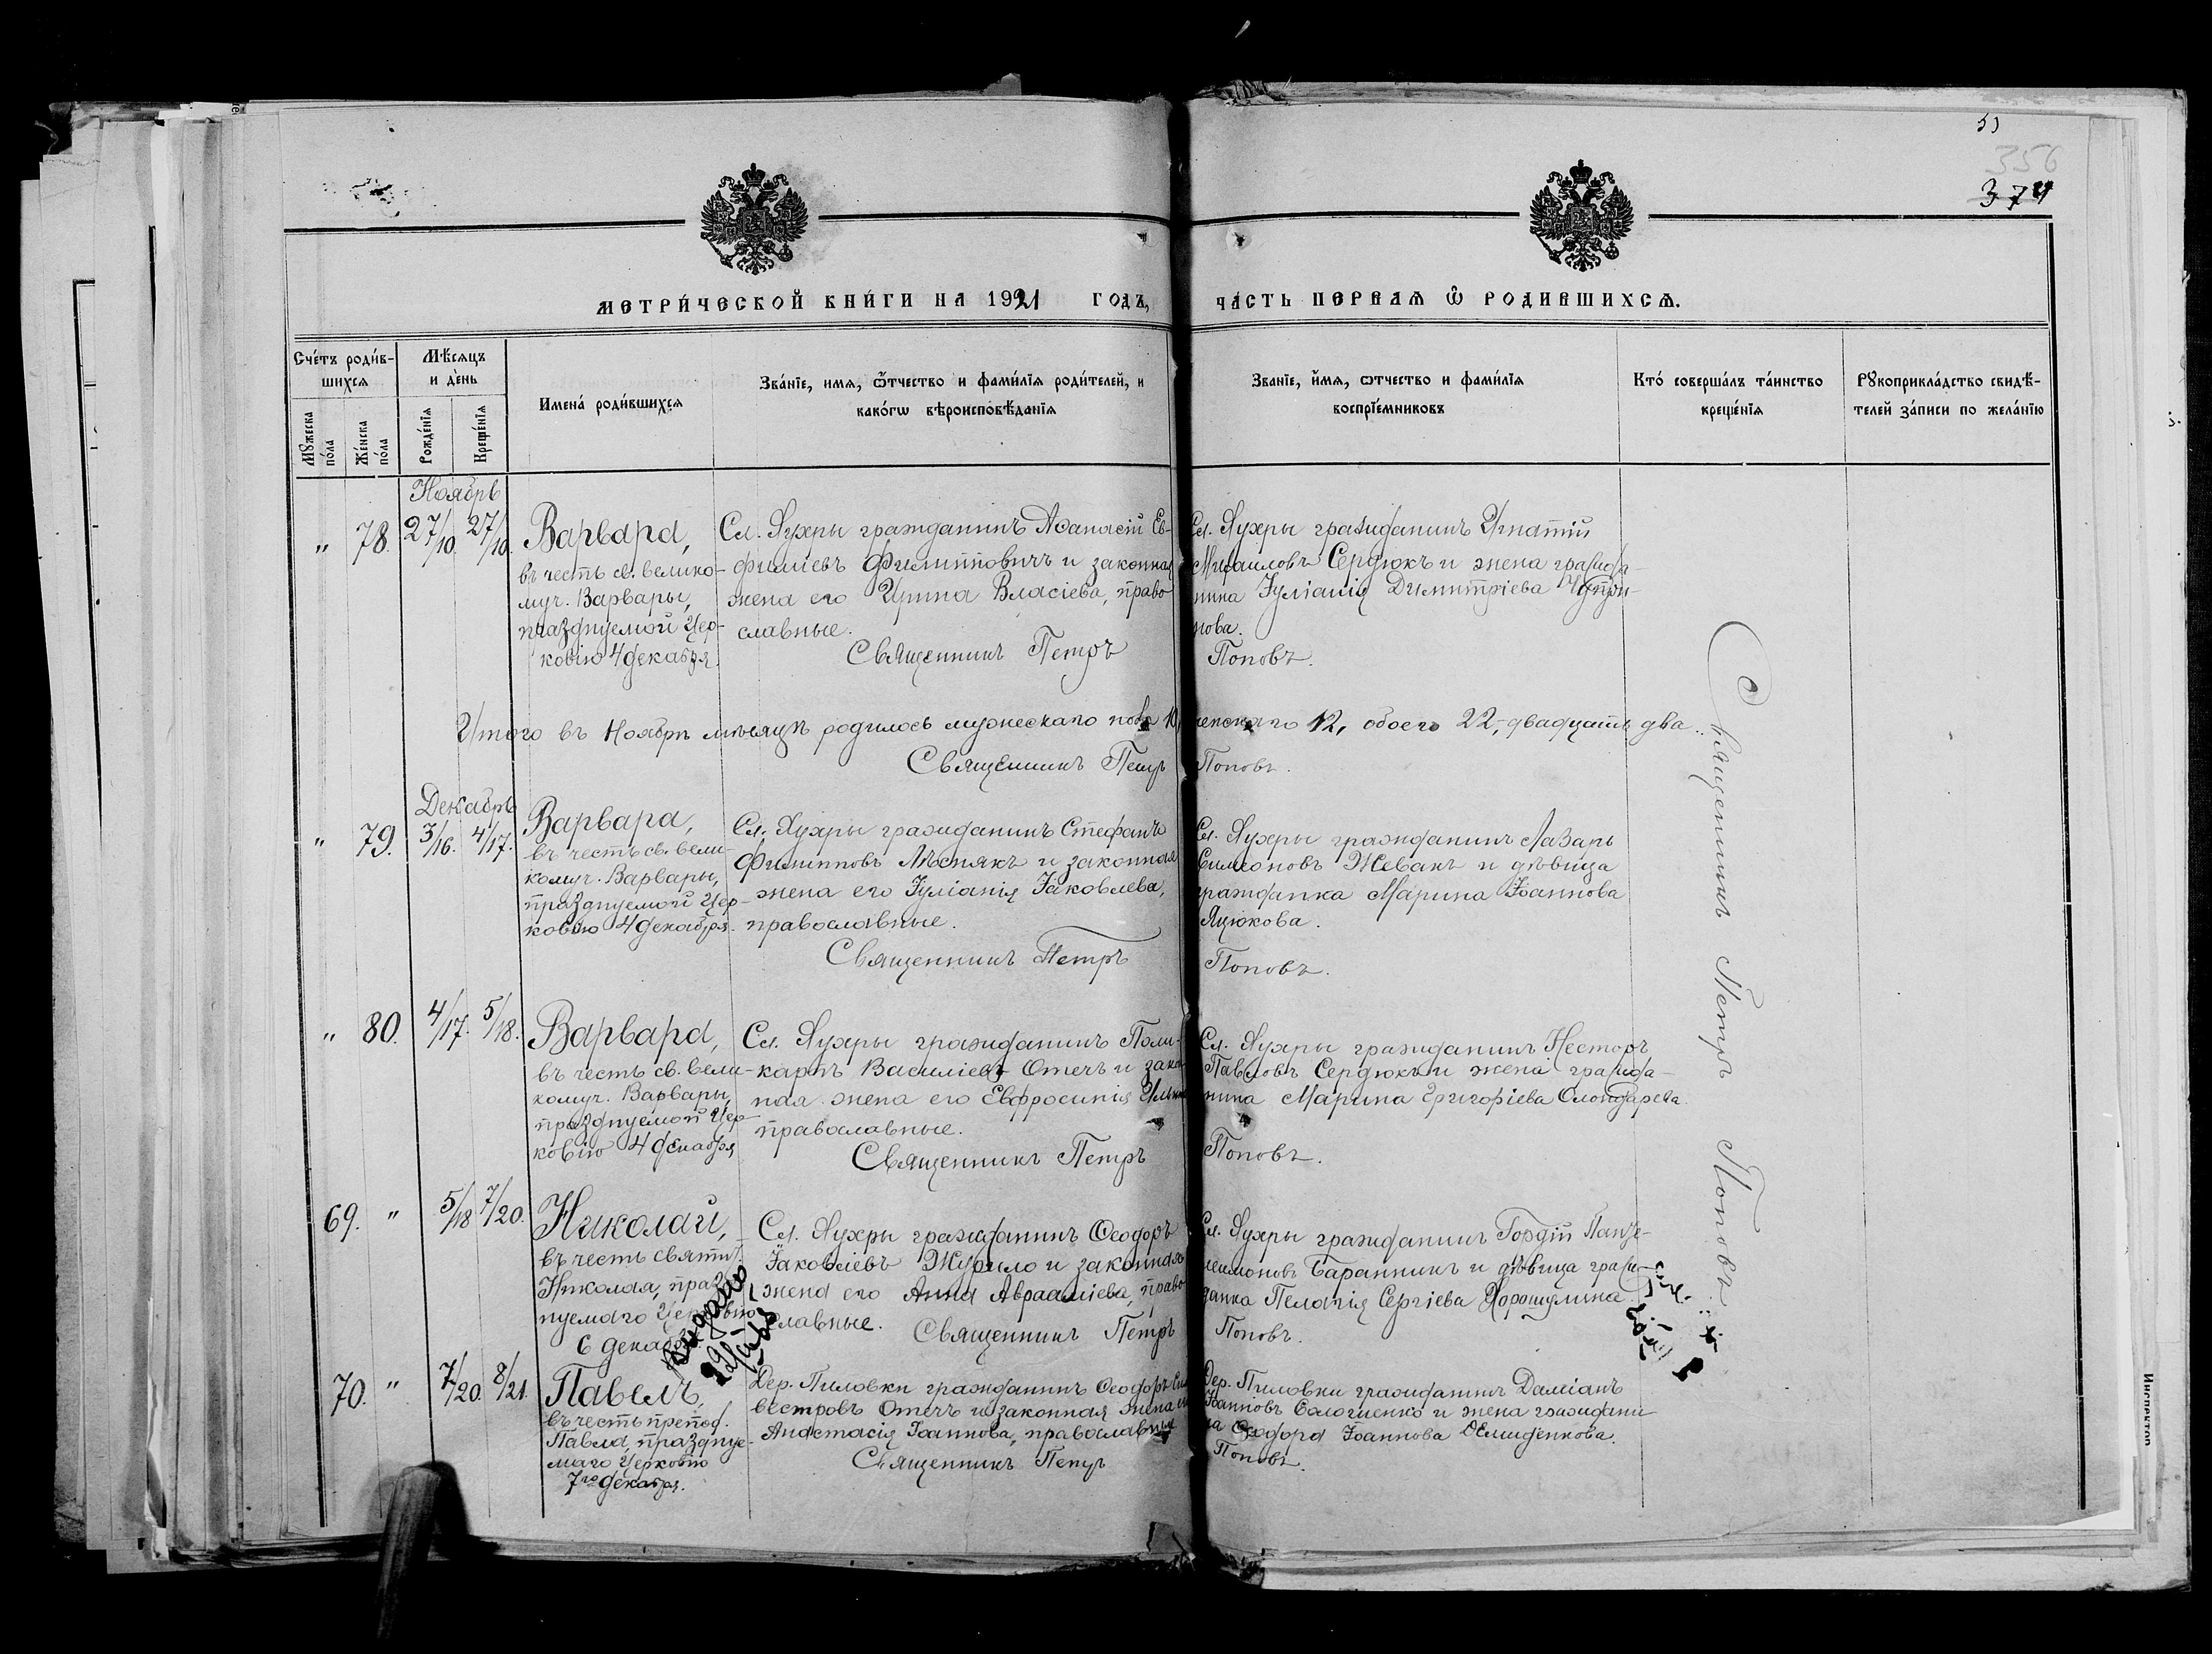 53
356
374
МЕТРИ́ЧЕСКОЙ КНИ́ГИ НА 1921 ГОДЪ, ЧА́СТЬ ПЕРВАѦ Ѿ РОДИВШИХСѦ.
Сче́тъ роди́в-
шихсѧ
Мꙋжеска по́ла
Же́нска по́ла
Мѣ́сѧцъ
и де́нь
Рожде́нїѧ
Креще́нїѧ
Имена́ роди́вшихсѧ
Зва́нїе, имѧ, ѻ́тчество и фами́лїѧ роди́телей, и
како́гѡ вѣроисповѣ́данїѧ
Званїе, и́мѧ, ѻтчество и фами́лїѧ
воспрїе́мниковъ
Кто́ соверша́лъ та́инство
креще́нїѧ
Рꙋкоприкла́дство свидѣ́-
телей за́писи по жела́нїю
Ноябрь
" 78. 27/10. 27/10.
Варвара,
въ честь св. велико-
муч. Варвары,
празднуемой Цер-
ковію 4 декабря.
Сл. Яухры гражданинъ Аѳанасій Ев-
фиміевъ Филипповичъ и законная
жена его Ирина Власіева, право
славные.
Священникъ Петръ
Сл. Яухры гражданинъ Игнатій
Михаиловъ Сердюкъ и жена гражда-
нина Іуліанія Димитріева
нова.
Поповъ.
Итого въ Ноябрѣ мѣсяцѣ родилось мужескаго пола 10, женскаго 12, обоего 22, - двадцать два.
Священникъ Петръ Поповъ.
Декабрь
" 79. 3/16. 4/17.
Варвара,
въ честь св. вели-
комуч. Варвары,
празднуемой Цер-
ковію 4 декабря.
Сл. Яухры гражданинъ Стефанъ
Филипповъ Лѣснякъ и законная
жена его Іуліанія Іаковлева,
православные.
Священникъ Петръ
Сл. Яухры гражданинъ Лазарь
Симеоновъ Жеванъ и дѣвица
гражданка Марина Іоаннова
Яцюкова.
Поповъ.
" 80. 4/17. 5/18.
Варвара,
въ честь св. вели-
комуч. Варвары,
празднуемой Цер-
ковію 4 декабря
Сл. Яухры гражданинъ Поли-
карпъ Василіевъ Отечъ и закон
ная жена его Евфросинія
православные.
Священникъ Петръ
Сл. Яухры гражданинъ Несторъ
Павловъ Сердюкъ и жена гражда-
нина Марина Григоріева Слондарева.
Поповъ.
69. " 5/18 7/20.
Николай,
въ честь святит.
Николая, празд-
нуемаго Церковію
6 декабря
Сл. Яухры гражданинъ Ѳеодоръ
Іаковлевъ Журило и законная
жена его Анна Авраамiева, право
славные.
Священникъ Петръ
Сл. Яухры гражданинъ Гордій Панте-
леимоновъ Баранникъ и дѣвица граж-
данка Пелагія Сергіева Хорошулина.
Поповъ.
Видано
70. " 7/20. 8/21.
Павелъ,
въ честь препод.
Павла, праздную-
маго Церковію
7го декабря.
Дер. Пиловки гражданинъ Ѳеодоръ Сил
вестровъ Отечъ и законная жена его
Анастасія Іоаннова, православные
Священникъ Петръ
Дер. Пиловки гражданинъ Даміанъ
Іоанновъ Сологиенко и жена граждани
на Ѳеодора Іоаннова Демиденкова.
Поповъ.
Священникъ Петръ Поповъ.
Инспектор